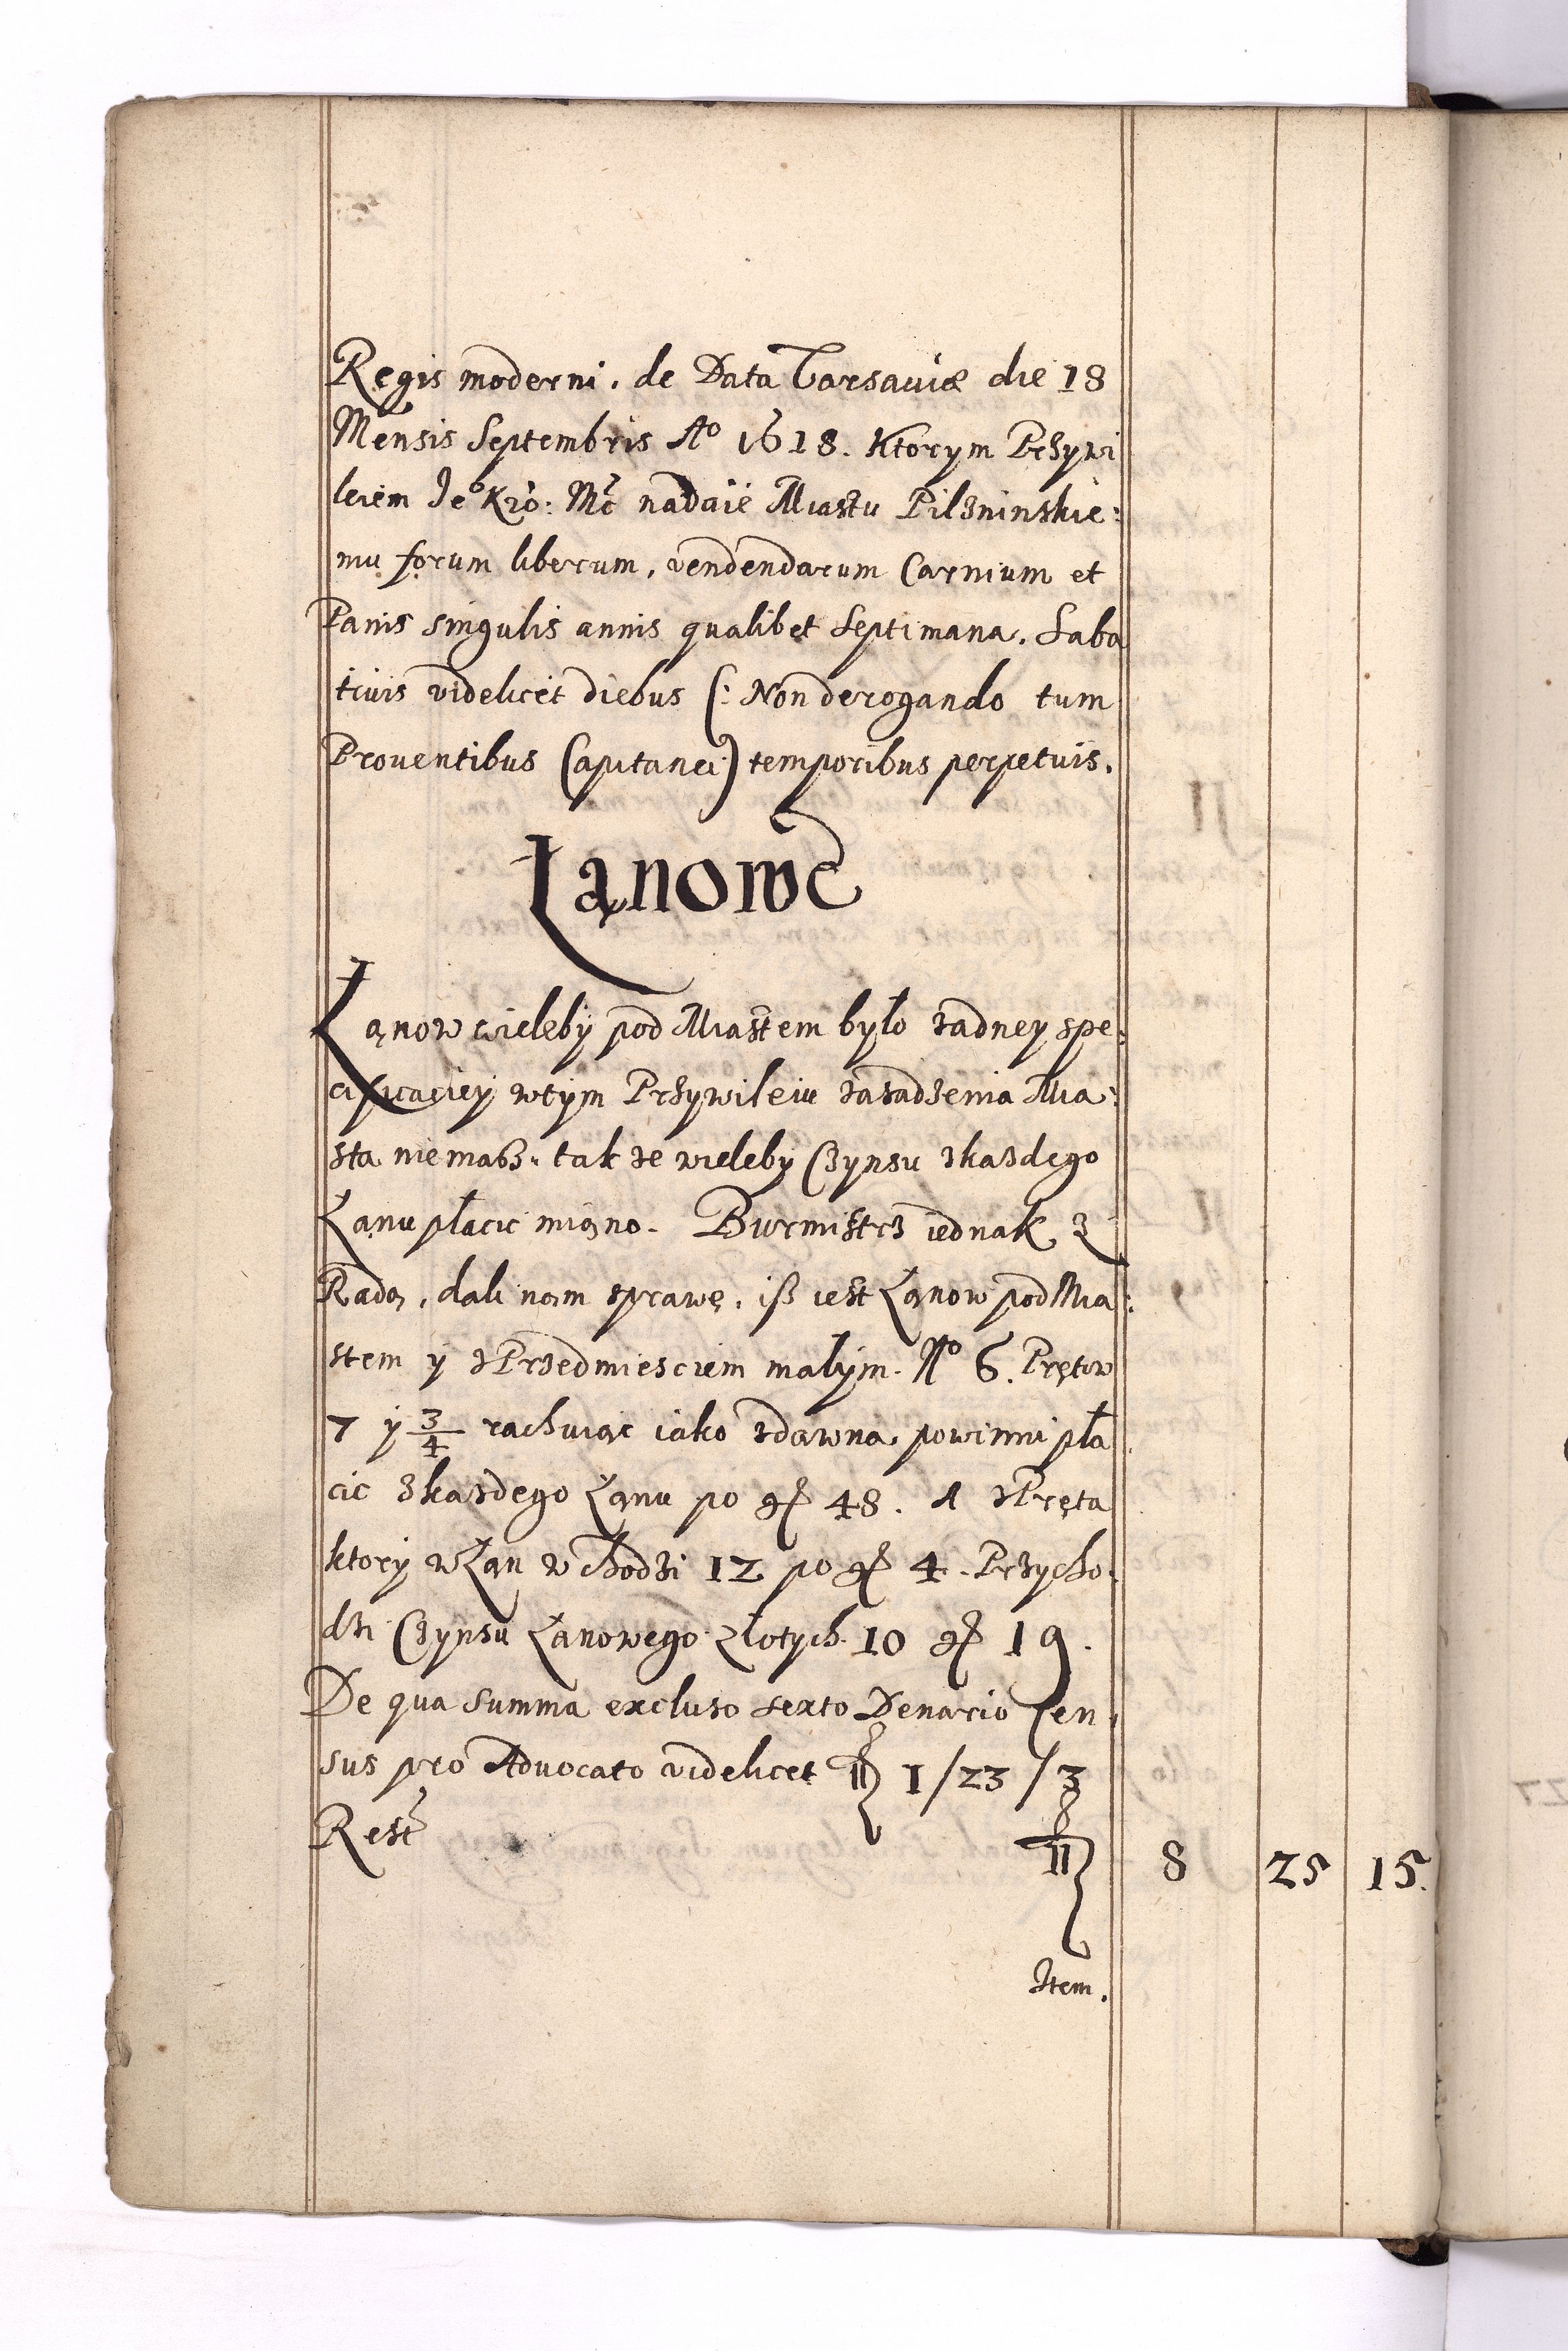 Regis moderni. de Data Varsaviæ die 18
Mensis Septembris Aº 1618. Ktorym Przywi
leiem Jeº Kró: Mć nadaie Miastu Pilzninskie:
mu forum liberum, vendendarum Carnium et
Panis singulis annis qualibet Septimana. Saba
tivis videlicet diebus (: Non derogando tum
Proventibus Capitanei:) temporibus perpetuis.
Łąnowe
Łąnow wieleby pod Miastem było żadney spe:
cificaciey w tym Przywileiu zasadzenia Mia:
sta niemasz. tak że wieleby Czynsu z każdego
Łąnu płacic miąno. Burmistrz iednak z
Radą, dali nąm sprawę, iß iest Łąnow pod Mia:
stem y z Przedmiesciem małym. Nº 6. Prętow
7 y 3/4 rachuiąc iako zdawna powinni pła
cic z każdego Łąnu po gł 48. A z Pręta
ktory w Łąn wchodzi 12 po gł 4. Przycho:
dzi Czynsu Łanowego złotych 10 gł 19.
De qua Summa excluso sexto Denario Cen:
sus pro Advocato videlicet fl 1/23/3
Rest fl 8 25 15.
Item.